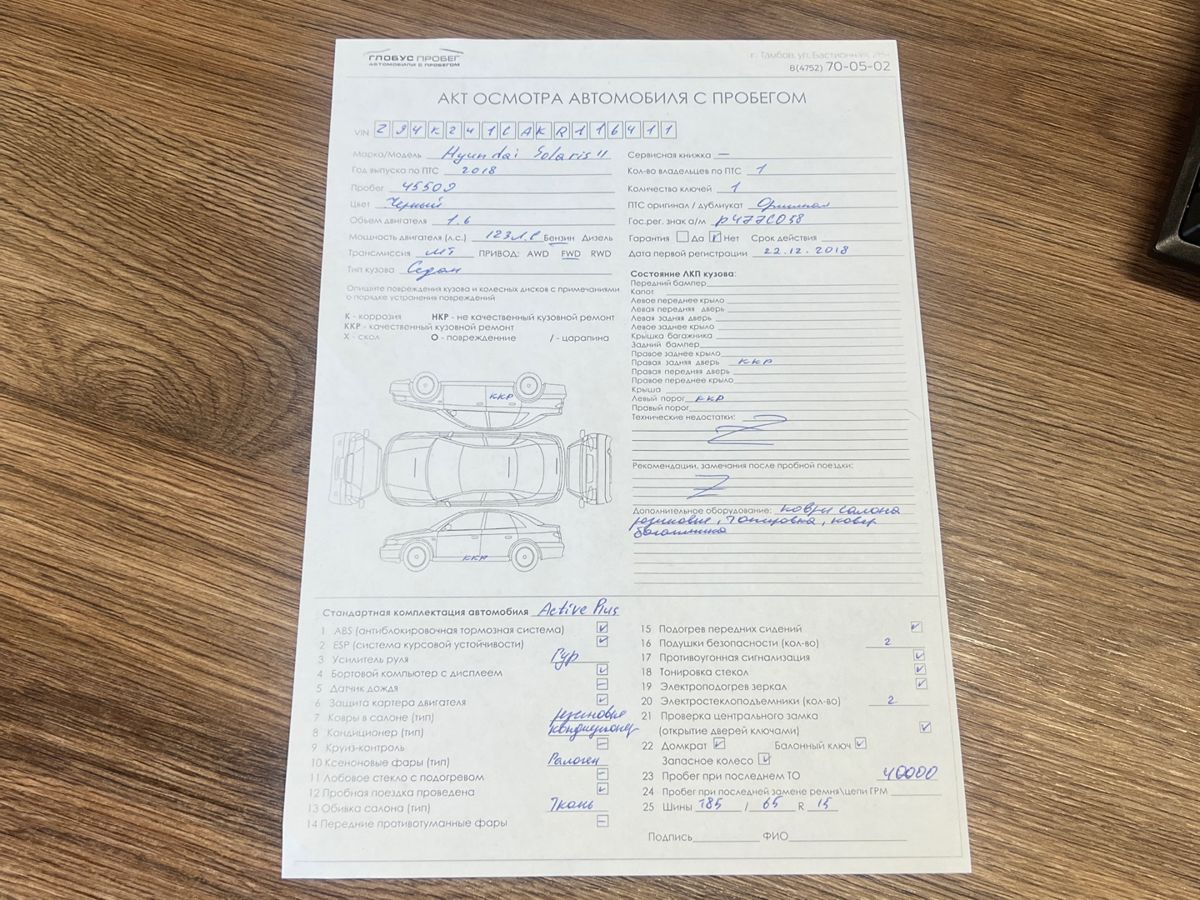 ГЛОБУС ПРОБЕГ
АВТОМОБИЛИ С ПРОБЕГОМ
г. Тамбов, ул. Бастионная,
8(4752) 70-05-02
АКТ ОСМОТРА АВТОМОБИЛЯ С ПРОБЕГОМ
VIN Z94K241CAKR116411
Марка/Модель Hyundai Solaris II
Год выпуска по ПТС 2018
Пробег 45509
Цвет Черный
Объем двигателя 1.6
Мощность двигателя (л.с.) 123 л.с Бензин Дизель
Трансмиссия МТ ПРИВОД: AWD FWD RWD
Тип кузова Седан
Опишите повреждения кузова и колесных дисков с примечаниями
о порядке устранения повреждений
К - коррозия НКР - не качественный кузовной ремонт
ККР - качественный кузовной ремонт
Х - скол О - повреждение / - царапина
ккр
ккр
Сервисная книжка —
Кол-во владельцев по ПТС 1
Количество ключей 1
ПТС оригинал / дубликат Оригинал
Гос.рег. знак а/м р477СО58
Гарантия Да Нет Срок действия
Дата первой регистрации 22.12.2018
Состояние ЛКП кузова:
Передний бампер
Капот
Левое переднее крыло
Левая передняя дверь
Левая задняя дверь
Левое заднее крыло
Крышка багажника
Задний бампер
Правое заднее крыло
Правая задняя дверь ккр
Правая передняя дверь
Правое переднее крыло
Крыша
Левый порог ккр
Правый порог
Технические недостатки:
Рекомендации, замечания после пробной поездки:
Дополнительное оборудование: ковры салона
резиновые, тонировка, ковер
багажника
Стандартная комплектация автомобиля Active Plus
1 ABS (антиблокировочная тормозная система)
2 ESP (система курсовой устойчивости)
3 Усилитель руля Гур
4 Бортовой компьютер с дисплеем
5 Датчик дождя
6 Защита картера двигателя
7 Ковры в салоне (тип) резиновые
8 Кондиционер (тип) кондиционер
9 Круиз-контроль
10 Ксеноновые фары (тип)
11 Лобовое стекло с подогревом
12 Пробная поездка проведена
13 Обивка салона (тип) Ткань
14 Передние противотуманные фары
15 Подогрев передних сидений
16 Подушки безопасности (кол-во) 2
17 Противоугонная сигнализация
18 Тонировка стекол
19 Электроподогрев зеркал
20 Электростеклоподъемники (кол-во) 2
21 Проверка центрального замка
(открытие дверей ключами)
22 Домкрат Балонный ключ
Запасное колесо
23 Пробег при последнем ТО 40000
24 Пробег при последней замене ремня\цепи ГРМ
25 Шины 185 / 65 R 15
Подпись ФИО